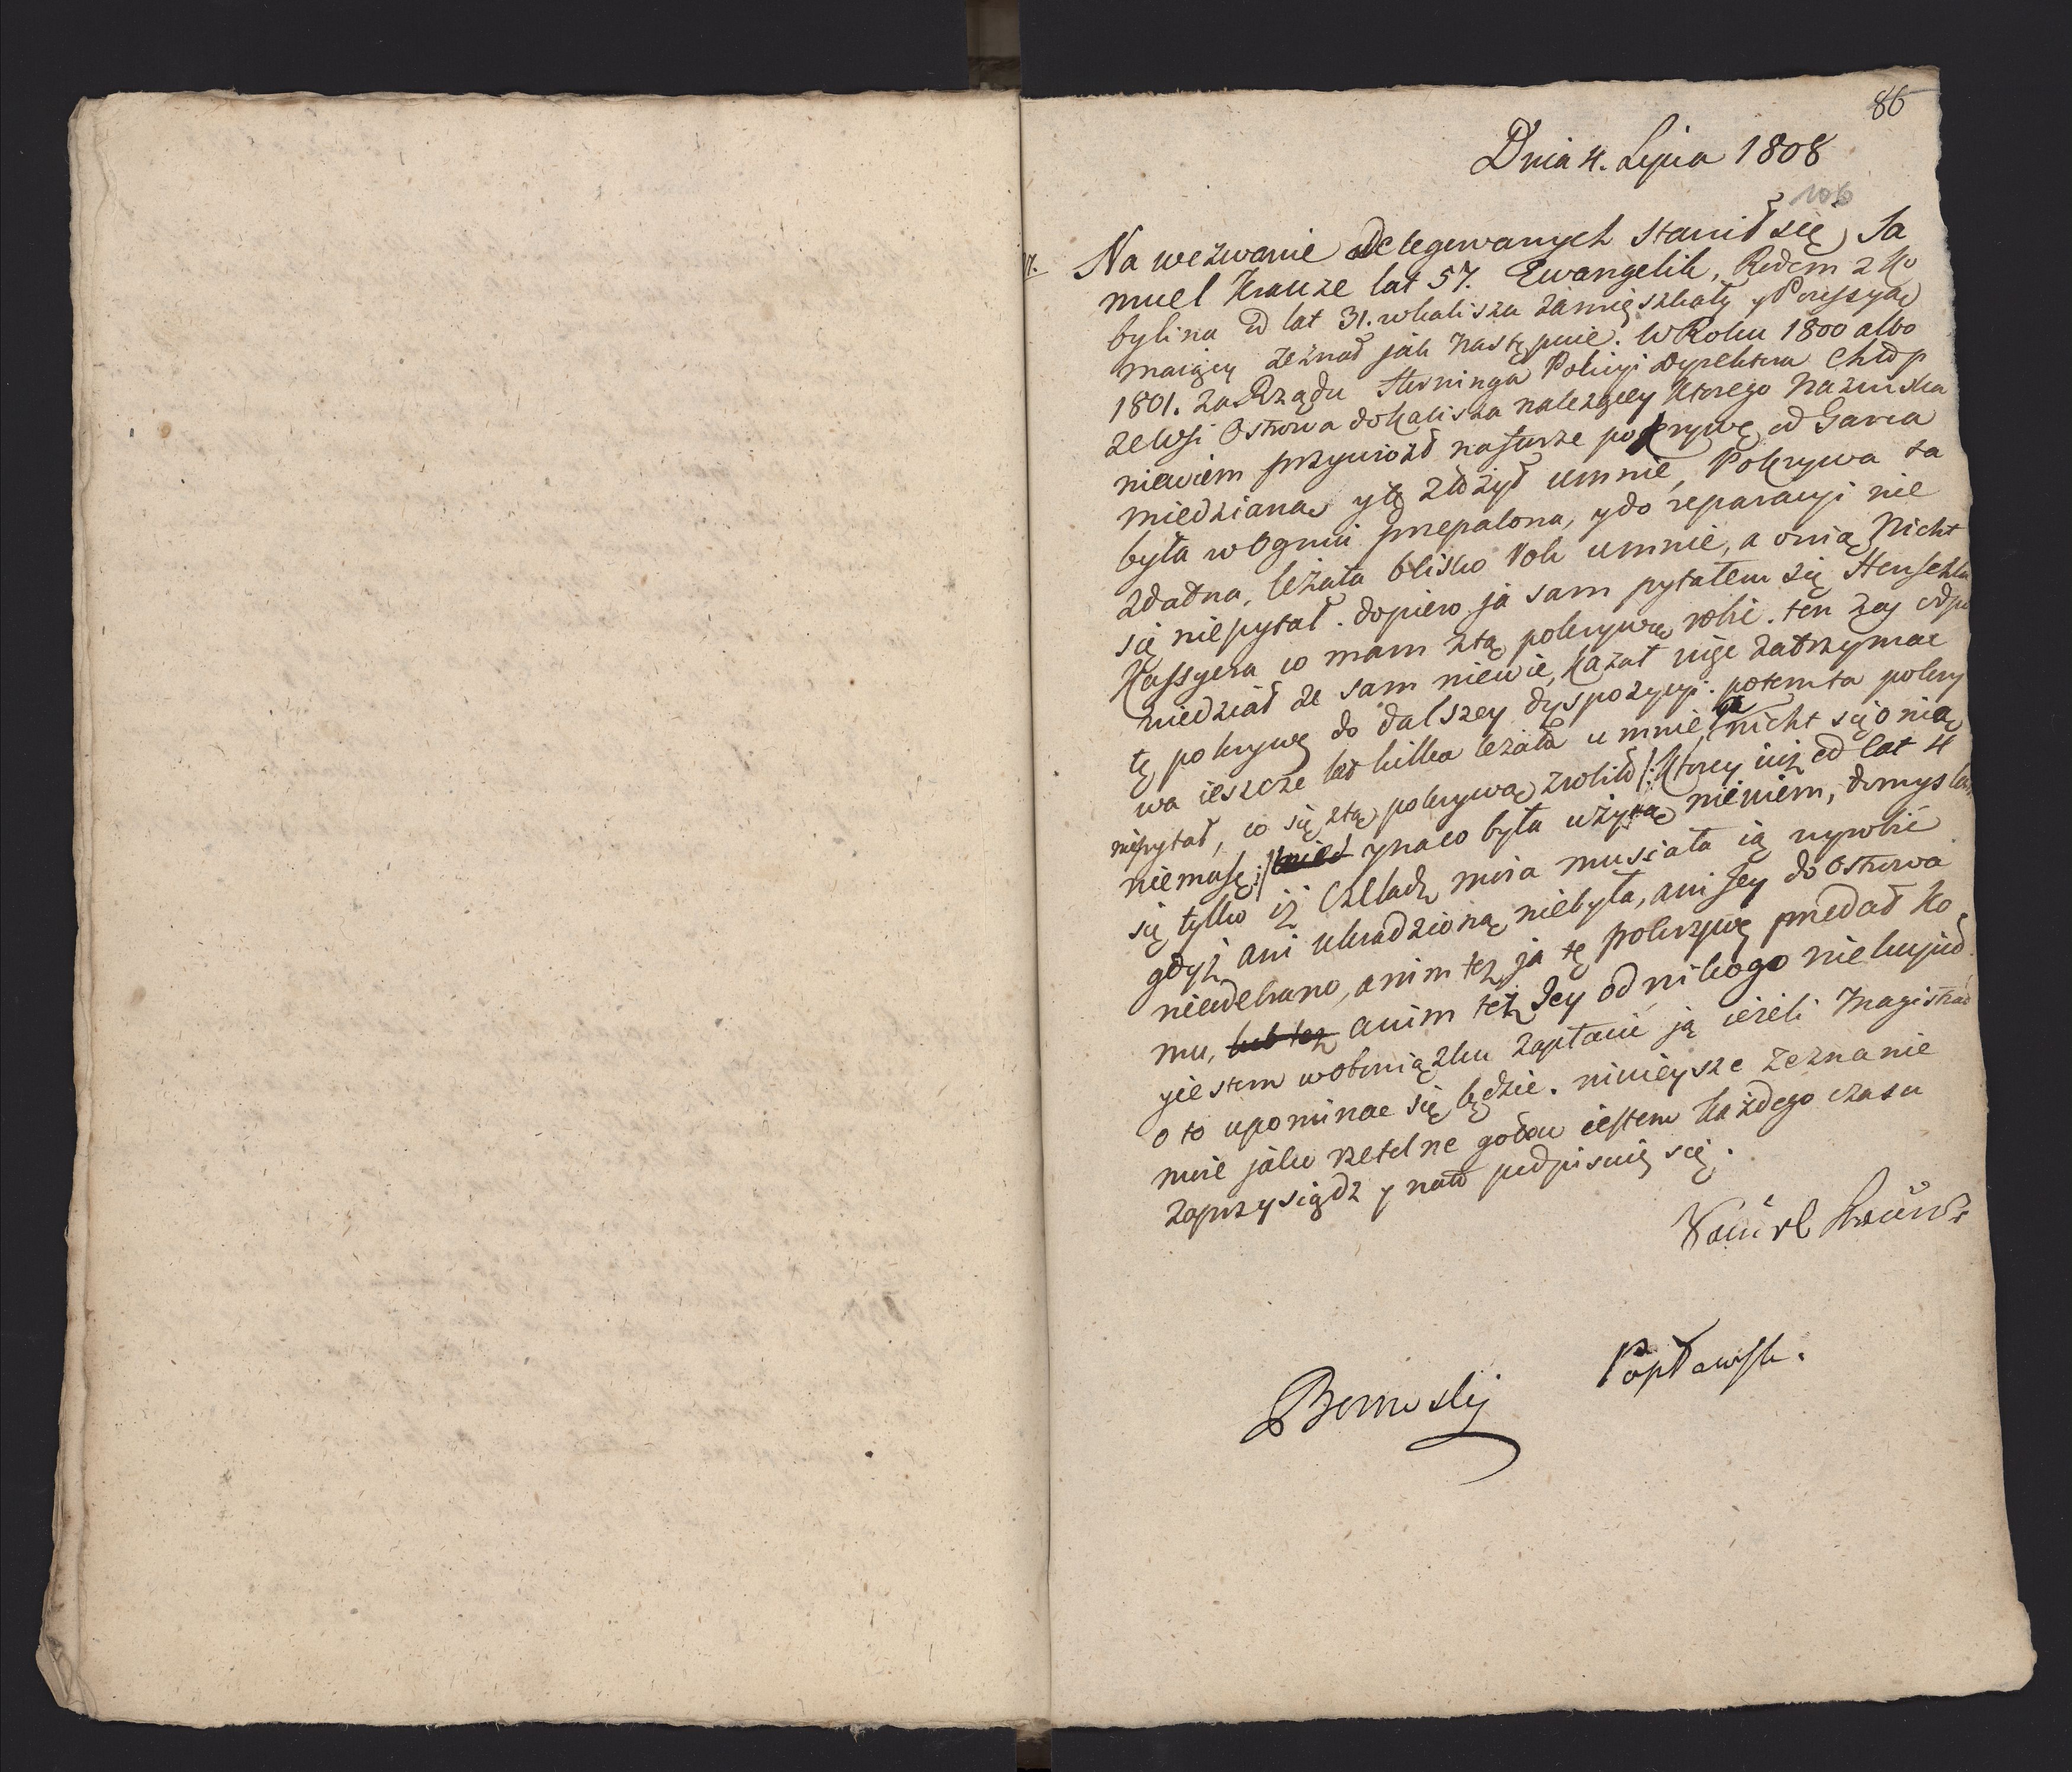 86
Dnia 4. Lipca 1808
106
17. Na wezwanie Delegowanych Stawił się, Sa
muel Krauze lat 57. Ewangelik, Rodem z Ko
bylina od lat 31. w kaliszu zamięszkały y Possysyą
maiący zeznał jak następuie. W Roku 1800 albo
1801. za Rządu Horninga Policyi Dyrektora Chłop
ze Wsi Ostrowa do Kalisza należący ktorego Nazwiska
niewiem przywiozł na furze pokrywę od Garca
miedzianą y tę złożył umnie, Pokrywa ta
była w Ogniu przepalona, y do reparacyi nie
zdatna, leżała blisko Rok umnie, a onią Nicht
się niepytał. dopiero ja sam pytałem się Henschla
Kassyera co mam ztą pokrywą robic. ten zas odpo
wiedział ze sam niewie, kazał więc zatrzymac
tę pokrywę do dalszey dyspozycyi. potem ta pokry
wa ieszcze lat kilka lezała u mnie, a nicht się o nią
niepytał, co się ztą pokrywą zrobiło /: ktorey iuż od lat 4
niemasz :/ y na co była użyta niewiem, domyslam
się tylko iż Czeladz moia musiała ią wyrobic
gdyż ani ukradzioną niebyła, ani Jey do Ostrowa
nieodebrano, anim też ja tę pokrywę przedał Ko
mu, lub też anim też Jey od nikogo niekupił.
jiestem wobowiązku zapłacic ją ieżeli Magistrat
o to upominac się będzie. ninieysze Zeznanie
moie jako rzetelne gotow iestem każdego czasu
zaprzysiądz y nato podpisuię się.
Samuel Krauze
Popławsk.